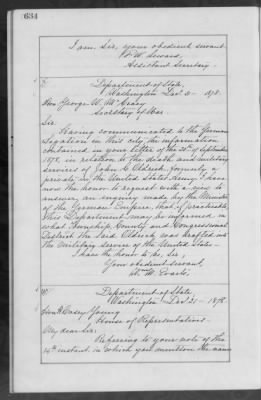 634
I am, Sir, your obedient servant
F. W. Seward,
Assistant Secretary.
Department of State,
Washington, Dec. 1878.
Hon. George W. McCrary
Secretary of War
Sir
Having communicated to the German
Legation in this city the information
contained in your letter of the 30th of September
1878, in relation to the death and military
services of John C. Oldrick, formerly a
private in the United States Army, I have
now the honor to request with a view to
answer, an inquiry made by the Minister
of the German Empire, that, if practicable,
this Department may be informed in
what Township, County and Congressional
District the said Oldrick was drafted into
the Military Service of the United States.
I have the honor to be, Sir,
Your obedient servant,
Wm. M. Evarts
Department of State
Washington Dec. 21 1878
Hon. Casey Young
House of Representatives.
My dear Sir:
Referring to your note of the
14th instant, in which you mention the name